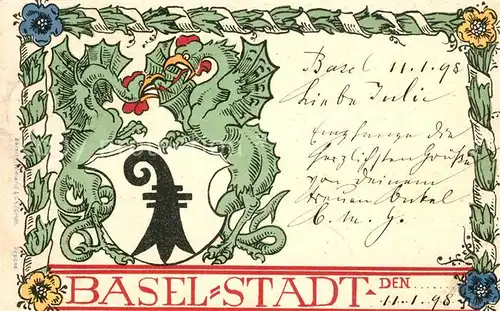 Basel 11.1.98
Liebe Julie
Empfange die
herzlichsten Grüße
von deinem
treuen Onkel
C. M. G.
BASEL=STADT DEN
11.1.98